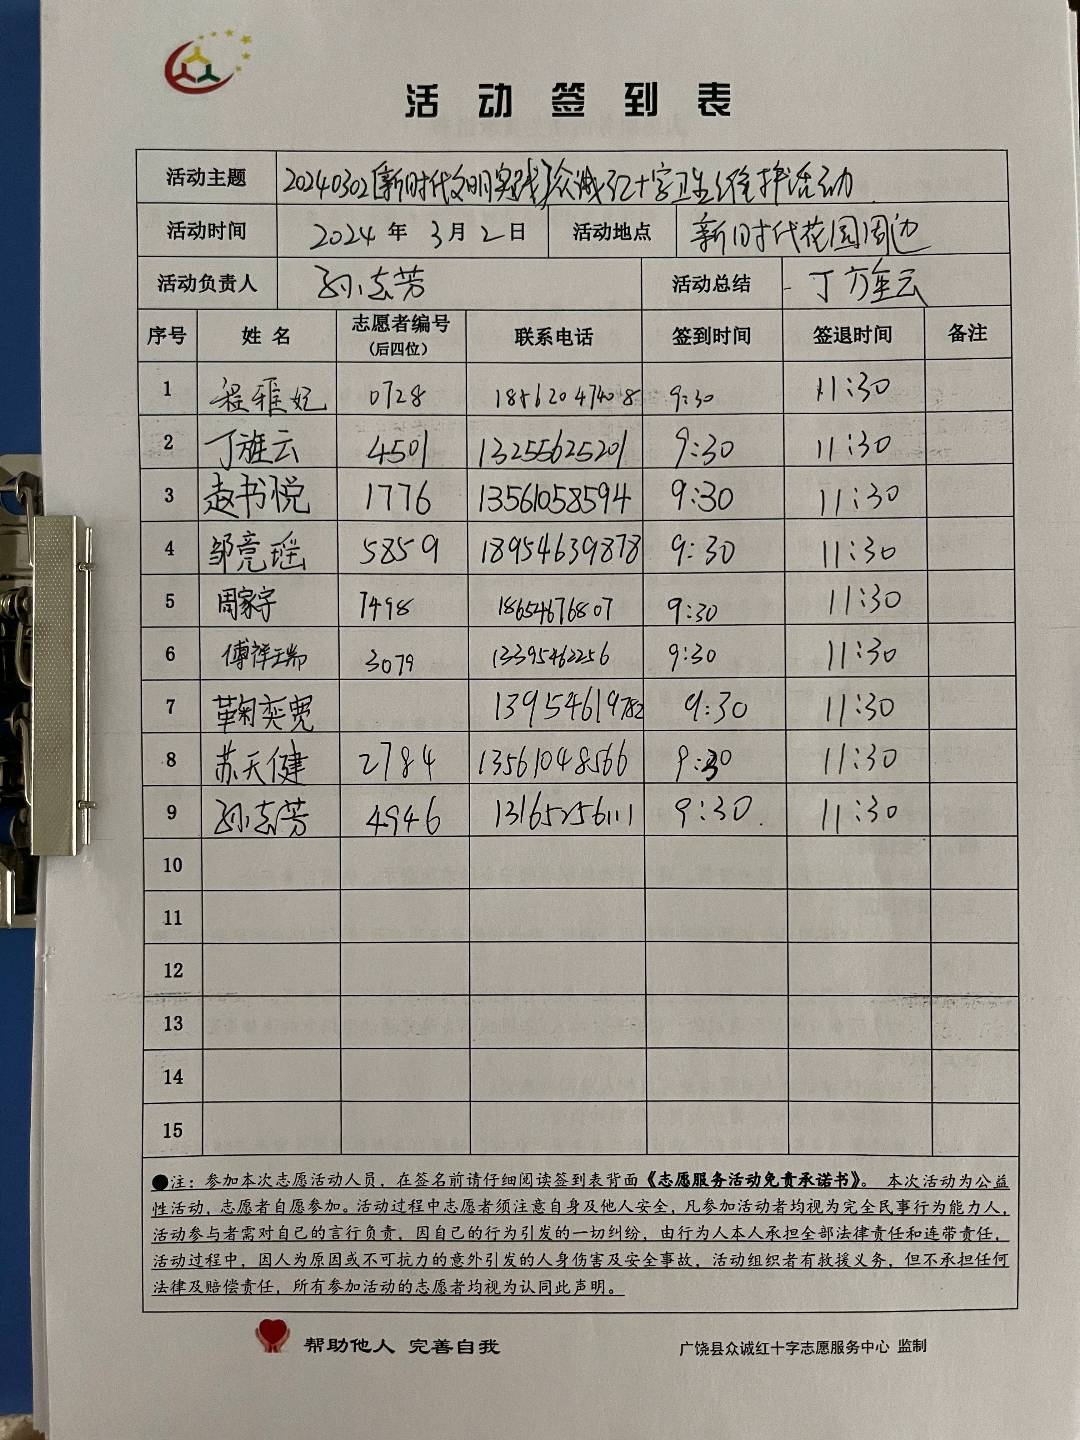 活动签到表
活动主题 20240302[新时代文明实践]众诚红十字卫生维护活动
活动时间 2024年3月2日 活动地点 新时代花园周边
活动负责人 孙志芳 活动总结 丁方金云
序号 姓名 志愿者编号(后四位) 联系电话 签到时间 签退时间 备注
1 程雅妃 0728 18562047408 9:30 11:30
2 丁旌云 4501 13255625201 9:30 11:30
3 赵书悦 1776 13561058594 9:30 11:30
4 邹竞瑶 5859 18954639878 9:30 11:30
5 周家宇 7498 18654676807 9:30 11:30
6 傅祥瑞 3079 13395462256 9:30 11:30
7 鞠奕宽 13954619782 9:30 11:30
8 苏天健 2784 13561048566 9:30 11:30
9 孙志芳 4946 13165256111 9:30 11:30
10
11
12
13
14
15
●注：参加本次志愿活动人员，在签名前请仔细阅读签到表背面《志愿服务活动免责承诺书》。本次活动为公益
性活动，志愿者自愿参加。活动过程中志愿者须注意自身及他人安全，凡参加活动者均视为完全民事行为能力人，
活动参与者需对自己的言行负责，因自己的行为引发的一切纠纷，由行为人本人承担全部法律责任和连带责任，
活动过程中，因人为原因或不可抗力的意外引发的人身伤害及安全事故，活动组织者有救援义务，但不承担任何
法律及赔偿责任，所有参加活动的志愿者均视为认同此声明。
帮助他人 完善自我 广饶县众诚红十字志愿服务中心 监制